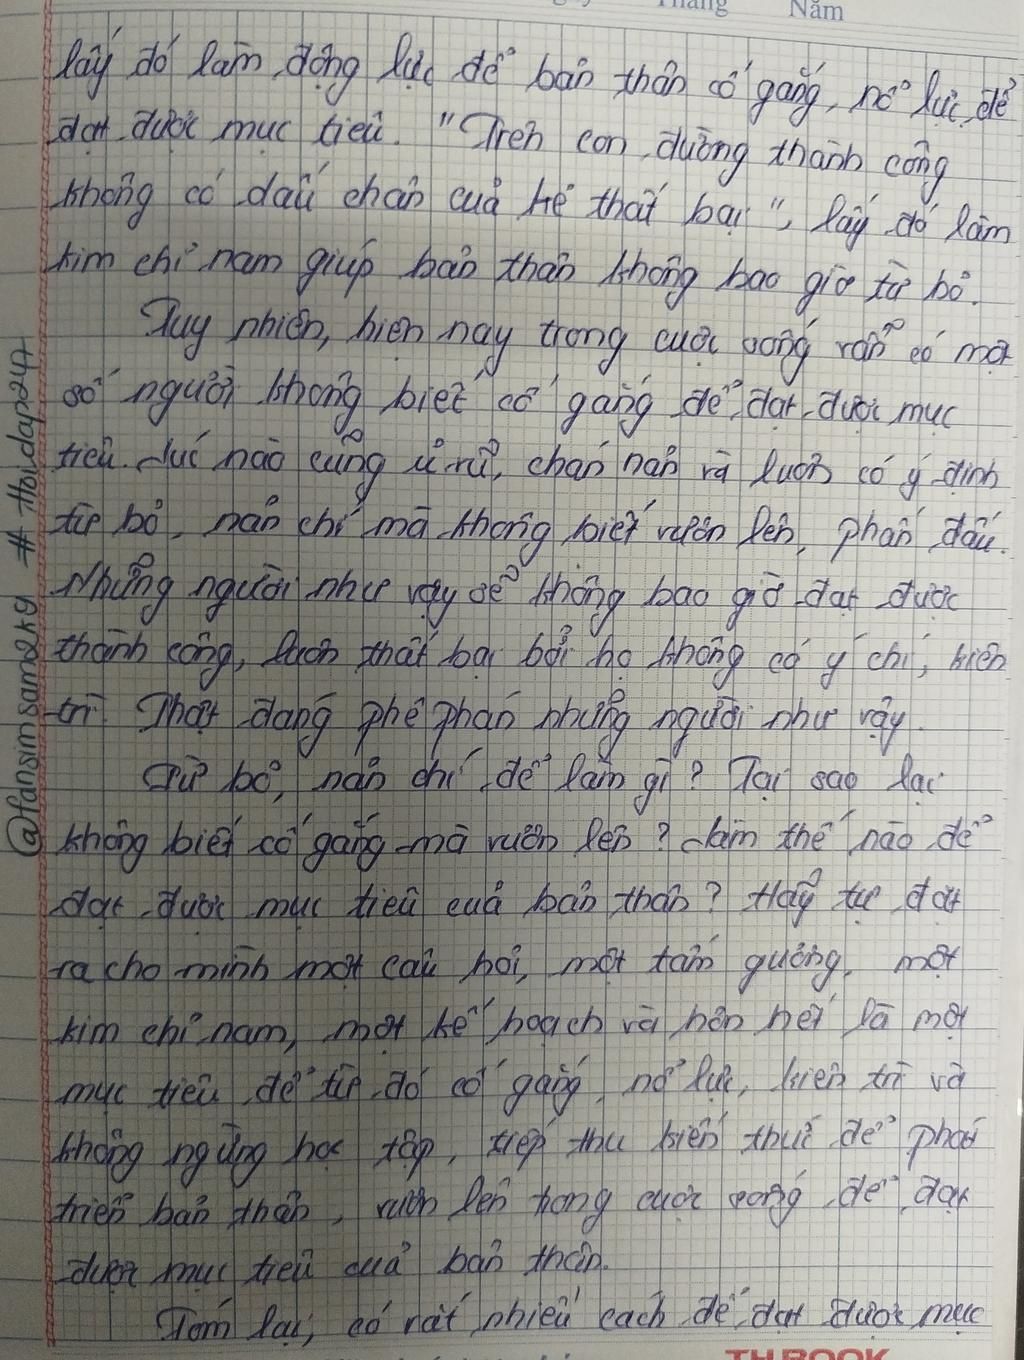 Tháng Năm
lấy đó làm động lực để bản thân cố gắng, nổ lực để
đạt được mục tiêu. "Trên con đường thành công
không có dấu chân của kẻ thất bại", lấy đó làm
kim chỉ nam giúp bản thân không bao giờ từ bỏ.
Tuy nhiên, hiện nay trong cuộc sống vẫn có một
số người không biết cố gắng để đạt được mục
tiêu. Lúc nào cũng ủ rũ, chán nản và luôn có ý định
từ bỏ, nản chí mà không biết vươn lên, phấn đấu.
Những người như vậy sẽ không bao giờ đạt được
thành công, luôn thất bại bởi họ không có ý chí, kiên
trì. Thật đáng phê phán những người như vậy.
Từ bỏ, nản chí để làm gì? Tại sao lại
không biết cố gắng mà vươn lên? Làm thế nào để
đạt được mục tiêu của bản thân? Hãy tự đặt
ra cho mình một câu hỏi, một tấm gương, một
kim chỉ nam, một kế hoạch và hơn hết là một
mục tiêu để từ đó cố gắng, nổ lực, kiên trì và
không ngừng học tập, tiếp thu kiến thức để phát
triển bản thân, vươn lên trong cuộc sống để đạt
được mục tiêu của bản thân.
Tóm lại, có rất nhiều cách để đạt được mục
@fansimsam2kg # Hoidap247
TH.BOOK